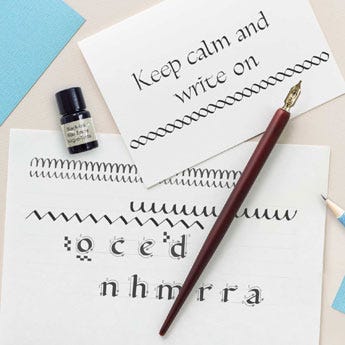 Keep calm and
write on
o c e d
n h m r r a